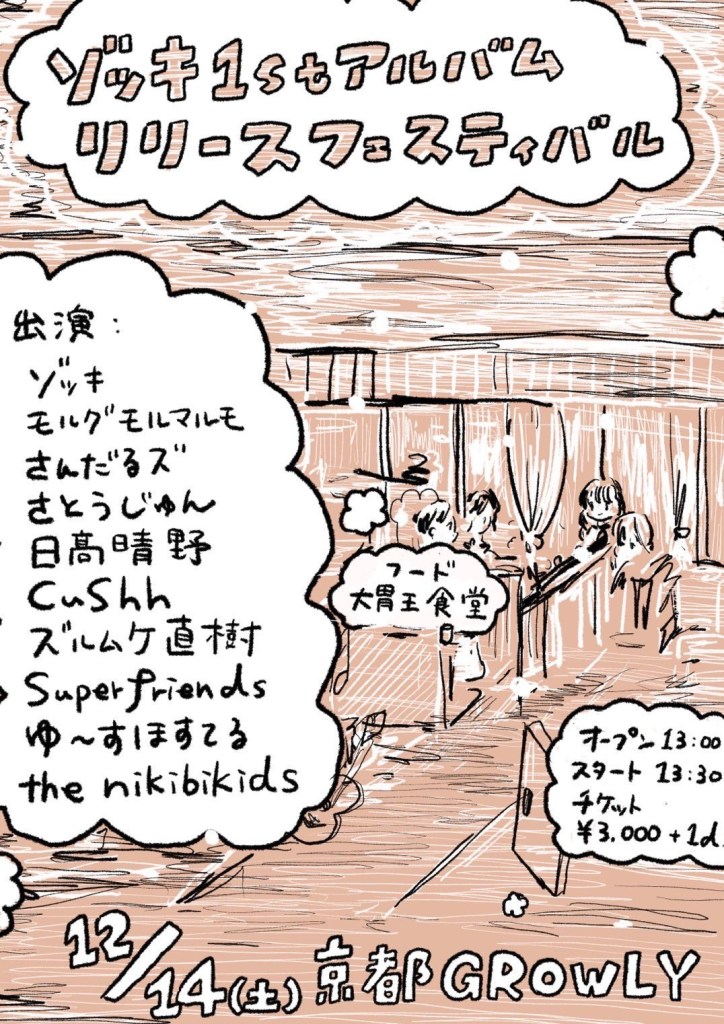 ゾッキ1stアルバム
リリースフェスティバル
出演:
ゾッキ
モルグモルマルモ
さんだるズ
さとうじゅん
日髙晴野
CuShh
ズルムケ直樹
Superfriends
ゆ〜すほすてる
the nikibikids
フード
大胃王食堂
オープン 13:00
スタート 13:30
チケット
¥3,000+1d
12/14(土) 京都GROWLY